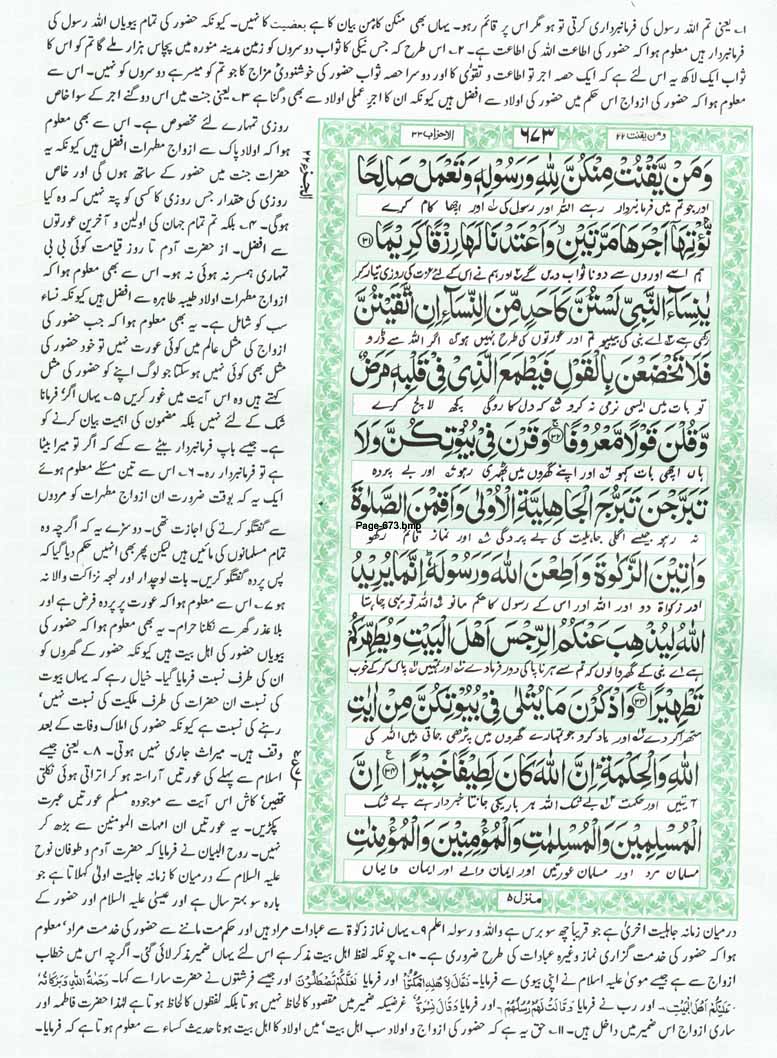 ۱۔ یعنی تم اللہ رسول کی فرمانبرداری کرتی تو ہو مگر اس پر قائم رہو۔ یہاں بھی منکن کا من بیان کا ہے بعضیت کا نہیں۔ کیونکہ حضور کی تمام بیویاں اللہ رسول کی
فرمانبردار ہیں معلوم ہوا کہ حضور کی اطاعت اللہ کی اطاعت ہے۔ ۲۔ اس طرح کہ جس نیکی کا ثواب دوسروں کو زمین مدینہ منورہ میں پچاس ہزار ملے گا تم کو اس کا
ثواب ایک لاکھ یہ اس لئے ہے کہ ایک حصہ اجر تو اطاعت و تقویٰ کا اور دوسرا حصہ ثواب حضور کی خوشنودیٔ مزاج کا جو تم کو میسر ہے دوسروں کو نہیں۔ اس سے
معلوم ہوا کہ حضور کی ازواج اس حکم میں حضور کی اولاد سے افضل ہیں کیونکہ ان کا اجر عملی اولاد سے بھی دگنا ہے ۳۔ یعنی جنت میں اس دوگنے اجر کے سوا خاص
ومن یقنت ۲۲
۶۷۳
الاحزاب ۳۳
وَمَنْ يَّقْنُتْ مِنْكُنَّ لِلّٰهِ وَرَسُوْلِهٖ وَتَعْمَلْ صَالِحًا
اور جو تم میں فرمانبردار رہے اللہ اور رسول کی اور اچھا کام کرے
نُّؤْتِهَآ اَجْرَهَا مَرَّتَيْنِ وَاَعْتَدْنَا لَهَا رِزْقًا كَرِيْمًا ۳۱
ہم اسے اوروں سے دونا ثواب دیں گے اور ہم نے اس کے لئے عزت کی روزی تیار کر
يٰنِسَآءَ النَّبِيِّ لَسْتُنَّ كَاَحَدٍ مِّنَ النِّسَآءِ اِنِ اتَّقَيْتُنَّ
رکھی ہے اے نبی کی بیبیو تم اور عورتوں کی طرح نہیں ہو اگر اللہ سے ڈرو
فَلَا تَخْضَعْنَ بِالْقَوْلِ فَيَطْمَعَ الَّذِيْ فِيْ قَلْبِهٖ مَرَضٌ
تو بات میں ایسی نرمی نہ کرو کہ دل کا روگی کچھ لالچ کرے
وَّقُلْنَ قَوْلًا مَّعْرُوْفًا ۳۲ وَقَرْنَ فِيْ بُيُوْتِكُنَّ وَلَا
ہاں اچھی بات کہو اور اپنے گھروں میں ٹھہری رہو اور بے پردہ
تَبَرَّجْنَ تَبَرُّجَ الْجَاهِلِيَّةِ الْاُوْلٰى وَاَقِمْنَ الصَّلٰوةَ
نہ رہو جیسے اگلی جاہلیت کی بے پردگی اور نماز قائم رکھو
Page-673.bmp
وَاٰتِيْنَ الزَّكٰوةَ وَاَطِعْنَ اللّٰهَ وَرَسُوْلَهٗ اِنَّمَا يُرِيْدُ
اور زکوٰۃ دو اور اللہ اور اس کے رسول کا حکم مانو اللہ تو یہی چاہتا
اللّٰهُ لِيُذْهِبَ عَنْكُمُ الرِّجْسَ اَهْلَ الْبَيْتِ وَيُطَهِّرَكُمْ
ہے اے نبی کے گھر والو کہ تم سے ہر ناپاکی دور فرما دے اور تمہیں پاک کر کے خوب
تَطْهِيْرًا ۳۳ وَاذْكُرْنَ مَا يُتْلٰى فِيْ بُيُوْتِكُنَّ مِنْ اٰيٰتِ
ستھرا کر دے اور یاد کرو جو تمہارے گھروں میں پڑھی جاتی ہیں اللہ کی
اللّٰهِ وَالْحِكْمَةِ اِنَّ اللّٰهَ كَانَ لَطِيْفًا خَبِيْرًا ۳۴ اِنَّ
آیتیں اور حکمت بے شک اللہ ہر باریکی جانتا خبردار ہے بے شک
الْمُسْلِمِيْنَ وَالْمُسْلِمٰتِ وَالْمُؤْمِنِيْنَ وَالْمُؤْمِنٰتِ
مسلمان مرد اور مسلمان عورتیں اور ایمان والے اور ایمان والیاں
منزل ۵
روزی تمہارے لئے مخصوص ہے۔ اس سے بھی معلوم
ہوا کہ اولاد پاک سے ازواج مطہرات افضل ہیں کیونکہ یہ
حضرات جنت میں حضور کے ساتھ ہوں گی اور خاص
روزی کی مقدار جس روزی کا کسی کو پتہ نہیں کہ وہ کیا
ہوگی۔ ۴۔ بلکہ تم تمام جہان کی اولین و آخرین عورتوں
سے افضل۔ از حضرت آدم تا روز قیامت کوئی بی بی
تمہاری ہمسر نہ ہوئی نہ ہو۔ اس سے بھی معلوم ہوا کہ
ازواج مطہرات اولاد طیبہ طاہرہ سے افضل ہیں کیونکہ نساء
سب کو شامل ہے۔ یہ بھی معلوم ہوا کہ جب حضور کی
ازواج کی مثل عالم میں کوئی عورت نہیں تو خود حضور کی
مثل بھی کوئی نہیں ہوسکتا جو لوگ اپنے کو حضور کی مثل
کہتے ہیں وہ اس آیت میں غور کریں ۵۔ یہاں اگر فرمانا
شک کے لئے نہیں بلکہ مضمون کی اہمیت بیان کرنے کو
ہے۔ جیسے باپ فرمانبردار بیٹے سے کہے کہ اگر تو میرا بیٹا
ہے تو فرمانبردار رہ۔ ۶۔ اس سے تین مسئلے معلوم ہوئے
ایک یہ کہ بوقت ضرورت ان ازواج مطہرات کو مردوں
سے گفتگو کرنے کی اجازت تھی۔ دوسرے یہ کہ اگرچہ وہ
تمام مسلمانوں کی مائیں ہیں لیکن پھر بھی انہیں حکم دیا گیا کہ
پس پردہ گفتگو کریں۔ بات لوچدار اور لہجہ نزاکت والا نہ
ہو ۷۔ اس سے معلوم ہوا کہ عورت پر پردہ فرض ہے اور
بلاعذر گھر سے نکلنا حرام۔ یہ بھی معلوم ہوا کہ حضور کی
بیویاں حضور کی اہل بیت ہیں کیونکہ حضور کے گھروں کو
ان کی طرف نسبت فرمایا گیا۔ خیال رہے کہ یہاں بیوت
کی نسبت ان حضرات کی طرف ملکیت کی نسبت نہیں'
رہنے کی نسبت ہے کیونکہ حضور کی املاک وفات کے بعد
وقف ہیں۔ میراث جاری نہیں ہوتی۔ ۸۔ یعنی جیسے
اسلام سے پہلے کی عورتیں آراستہ ہو کر اتراتی ہوئی نکلتی
تھیں' کاش اس آیت سے موجودہ مسلم عورتیں عبرت
پکڑیں۔ یہ عورتیں ان امہات المومنین سے بڑھ کر
نہیں۔ روح البیان نے فرمایا کہ حضرت آدم و طوفان نوح
علیہ السلام کے درمیان کا زمانہ جاہلیت اولیٰ کہلاتا ہے جو
بارہ سو بہتر سال ہے اور عیسیٰ علیہ السلام اور حضور کے
درمیان زمانہ جاہلیت اخریٰ ہے جو قریباً چھ سو برس ہے واللہ و رسولہ اعلم ۹۔ یہاں نماز زکوٰۃ سے عبادات مراد ہیں اور حکومت ماننے سے حضور کی خدمت مراد' معلوم
ہوا کہ حضور کی خدمت گزاری نماز وغیرہ عبادات کی طرح ضروری ہے۔ ۱۰۔ چونکہ لفظ اہل بیت مذکر ہے اس لئے یہاں ضمیر مذکر لائی گئی۔ اگرچہ اس میں خطاب
ازواج سے ہے جیسے موسیٰ علیہ السلام نے اپنی بیوی سے فرمایا۔ فَقَالَ لِاَهْلِهِ امْكُثُوْا اور فرمایا لَعَلَّكُمْ تَصْطَلُوْنَ اور جیسے فرشتوں نے حضرت سارا سے کہا۔ رَحْمَةُ اللّٰهِ وَبَرَكَاتُهٗ
عَلَيْكُمْ اَهْلَ الْبَيْتِ۔ اور رب نے فرمایا وَقَالَتْ لَهُمْ رُسُلُهُمْ اور فرمایا وَقَالَ نِسْوَةٌ غرضیکہ ضمیر میں مقصود کا لحاظ نہیں ہوتا بلکہ لفظوں کا لحاظ ہوتا ہے لہٰذا حضرت فاطمہ اور
ساری ازواج اس ضمیر میں داخل ہیں۔ ۱۱۔ حق یہ ہے کہ حضور کی ازواج و اولاد سب اہل بیت' میں اولاد کا اہل بیت ہونا حدیث کساء سے معلوم ہوتا ہے کہ فرمایا۔